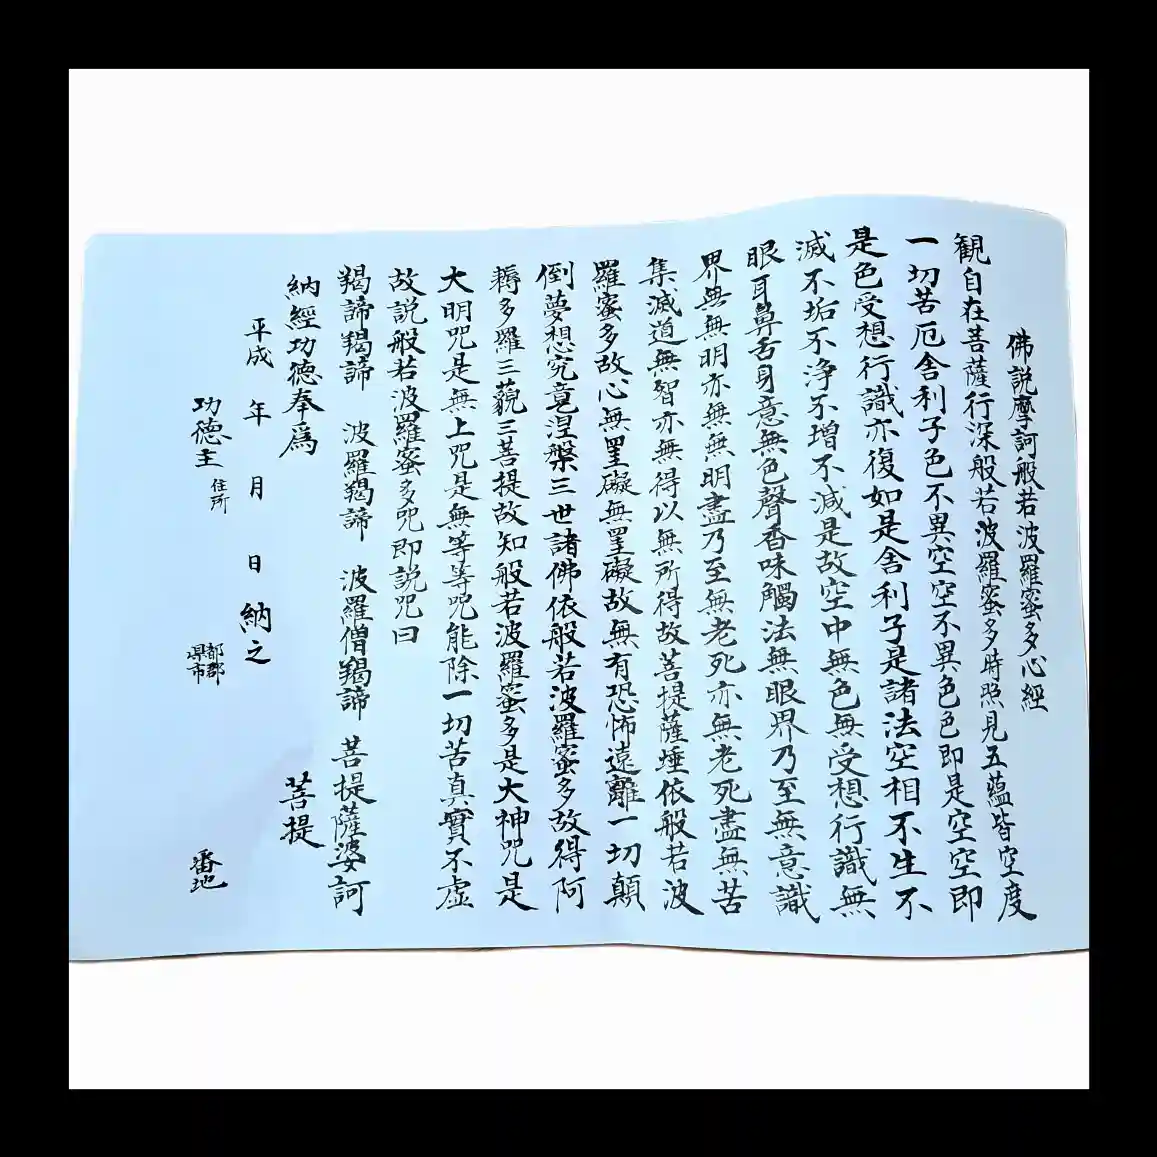 佛説摩訶般若波羅蜜多心經
観自在菩薩行深般若波羅蜜多時照見五蘊皆空度
一切苦厄舎利子色不異空空不異色色即是空空即
是色受想行識亦復如是舎利子是諸法空相不生不
滅不垢不浄不増不減是故空中無色無受想行識無
眼耳鼻舌身意無色聲香味觸法無眼界乃至無意識
界無無明亦無無明盡乃至無老死亦無老死盡無苦
集滅道無智亦無得以無所得故菩提薩埵依般若波
羅蜜多故心無罣礙無罣礙故無有恐怖遠離一切顛
倒夢想究竟涅槃三世諸佛依般若波羅蜜多故得阿
耨多羅三藐三菩提故知般若波羅蜜多是大神咒是
大明咒是無上咒是無等等咒能除一切苦真實不虛
故説般若波羅蜜多咒即説咒曰
羯諦羯諦 波羅羯諦 波羅僧羯諦 菩提薩婆訶
納經功徳奉爲 菩提
平成 年 月 日 納之
功徳主 住所 都郡県市 番地